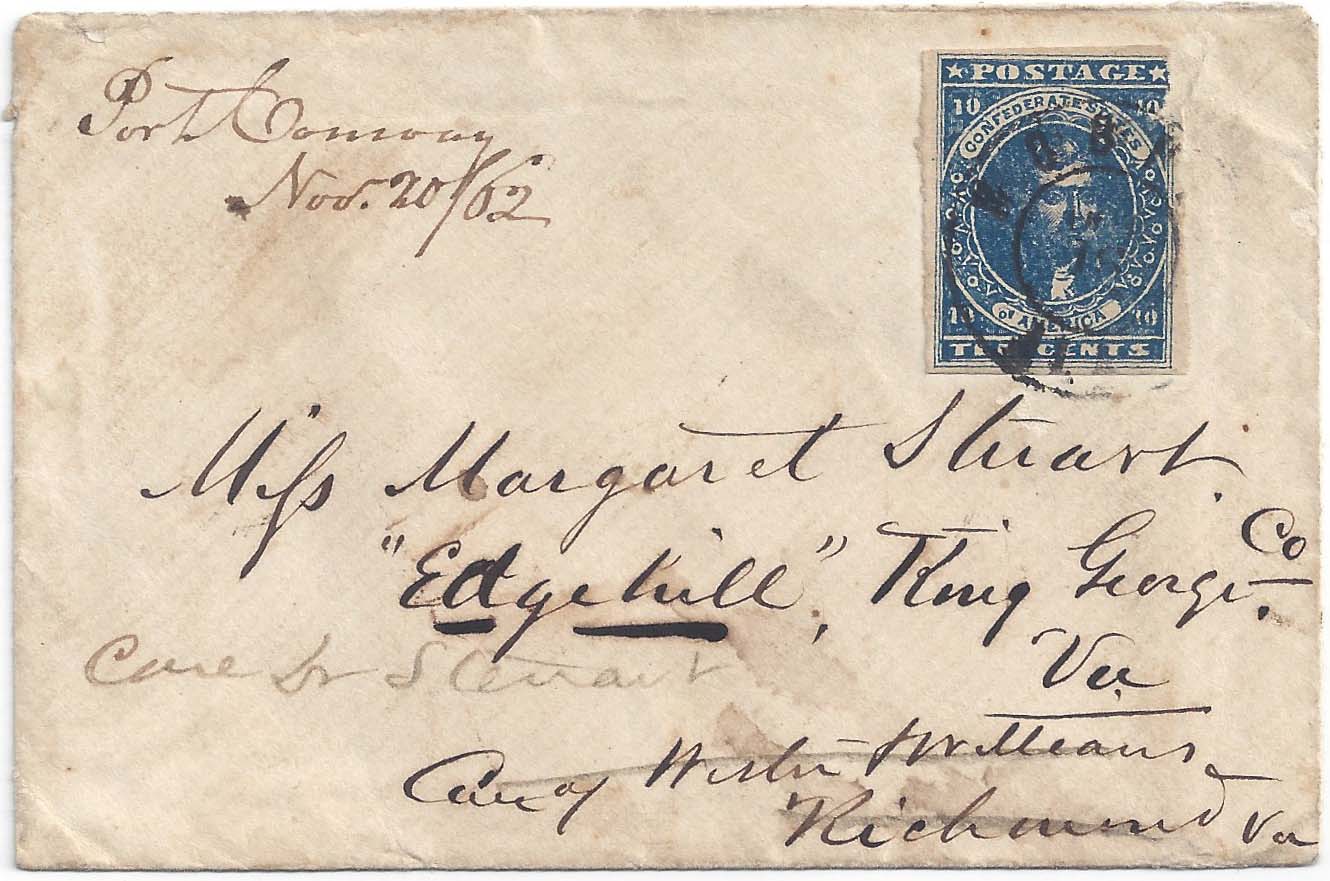 Port Conway
Nov. 20/62
★POSTAGE★
10 10
CONFEDERATE STATES
MOBI
10 10
of AMERICA
TEN CENTS
Miss Margaret Stuart.
"Edgehill", King George Co.
Va
Care Dr Stuart
Care of Williams
Richmond Va